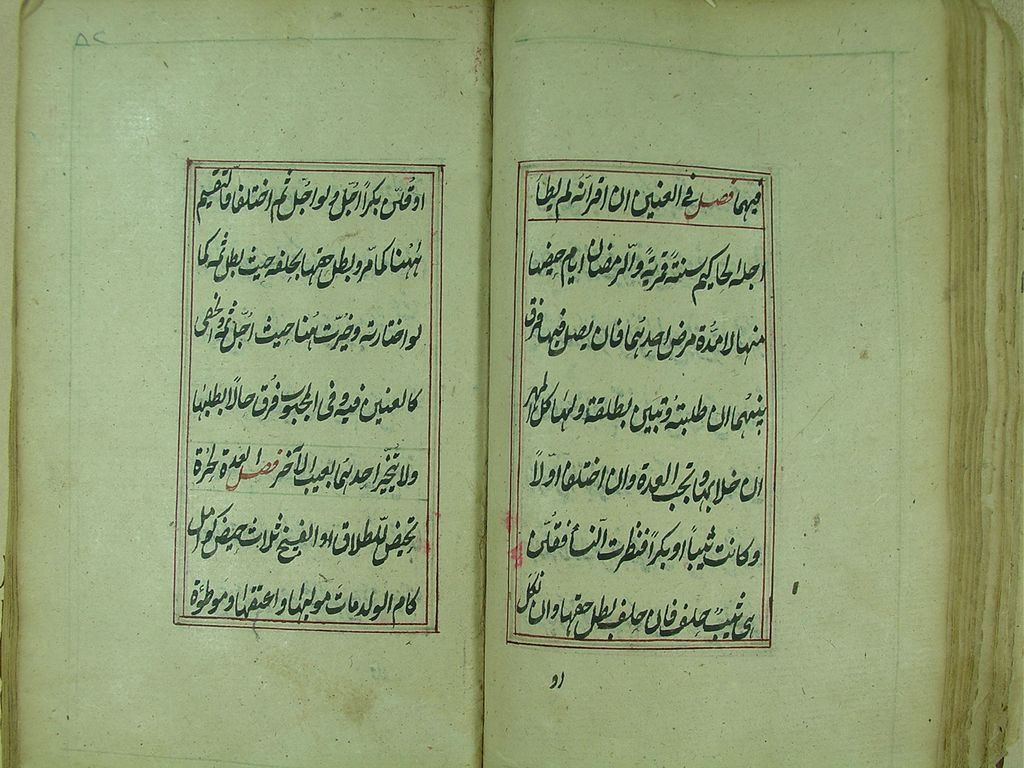 فيهما فصل في العنين ان اقر انه لم يطأ
اجله الحاكم سنة قمرية و رمضان ايام حيضها
منها لا مدة مرض احدهما فان لم يصل فيها فرق
بينهما ان طلبته و تبين بطلقة ولها كل المهر
ان خلا بها و تجب العدة وان اختلفا اولا
وكانت ثيبا او بكرا فنظرت النسأ فقلن
هي ثيب حلف فان حلف بطل حقها وان نكل
او
٥٢
او قلن بكرا اجل ولو اجل ثم اختلفا فالتقسيم
ههنا كما مر و بطل حقها بحلفه حيث بطل ثمه كما
لو اختارته و خيرت هنا حيث اجل ثمه والخصى
كالعنين فيه و فى المجبوب فرق حالا بطلبها
ولا يتخير احدهما بعيب الآخر فصل العدة لحرة
تحيض للطلاق او الفسخ ثلاث حيض كوامل
كام الولد مات مولاها او اعتقها و موطؤة